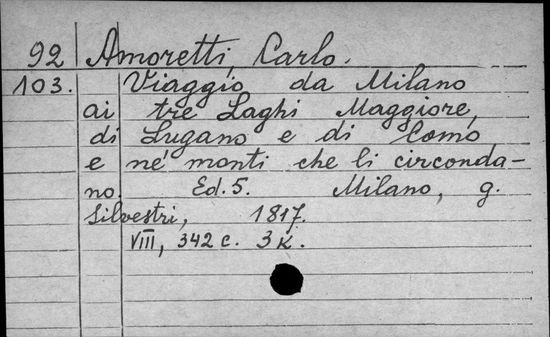 92 Amoretti, Carlo.
103. Viaggio da Milano
ai tre Laghi Maggiore,
di Lugano e di Como
e ne' monti che li circonda-
no. Ed. 5. Milano, g.
Silvestri, 1817.
VIII, 342 c. 3 K.